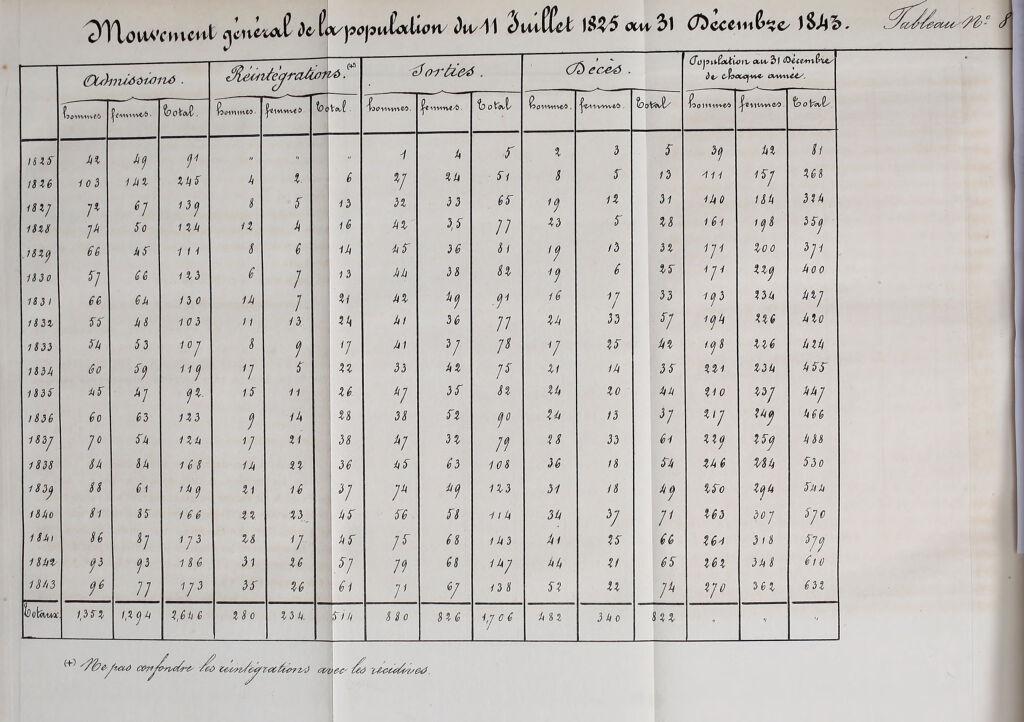 Mouvement général de la population du 11 Juillet 1825 au 31 Décembre 1843.
Tableau Nº 8
Admissions. Réintégrations.(+) Sorties. Décès. Population au 31 Décembre de chaque année.
hommes femmes. Total. hommes. femmes. Total. hommes. femmes. Total hommes. femmes. Total hommes femmes. Total
1825 42 49 91 " " " 1 4 5 2 3 5 39 42 81
1826 103 142 245 4 2 6 27 24 51 8 5 13 111 157 268
1827 72 67 139 8 5 13 32 33 65 19 12 31 140 184 324
1828 74 50 124 12 4 16 42 35 77 23 5 28 161 198 359
1829 66 45 111 8 6 14 45 36 81 19 13 32 171 200 371
1830 57 66 123 6 7 13 44 38 82 19 6 25 171 229 400
1831 66 64 130 14 7 21 42 49 91 16 17 33 193 234 427
1832 55 48 103 11 13 24 41 36 77 24 33 57 194 226 420
1833 54 53 107 8 9 17 41 37 78 17 25 42 198 226 424
1834 60 59 119 17 5 22 33 42 75 21 14 35 221 234 455
1835 45 47 92 15 11 26 47 35 82 24 20 44 210 237 447
1836 60 63 123 9 14 28 38 52 90 24 13 37 217 249 466
1837 70 54 124 17 21 38 47 32 79 28 33 61 229 259 488
1838 84 84 168 14 22 36 45 63 108 36 18 54 246 284 530
1839 88 61 149 21 16 37 74 49 123 31 18 49 250 294 544
1840 81 85 166 22 23 45 56 58 114 34 37 71 263 307 570
1841 86 87 173 28 17 45 75 68 143 41 25 66 261 318 579
1842 93 93 186 31 26 57 79 68 147 44 21 65 262 348 610
1843 96 77 173 35 26 61 71 67 138 52 22 74 270 362 632
Totaux 1,352 1,294 2,646 280 234 514 880 826 1,706 482 340 822 " " "
(+) Ne pas confondre les réintégrations avec les récidives.